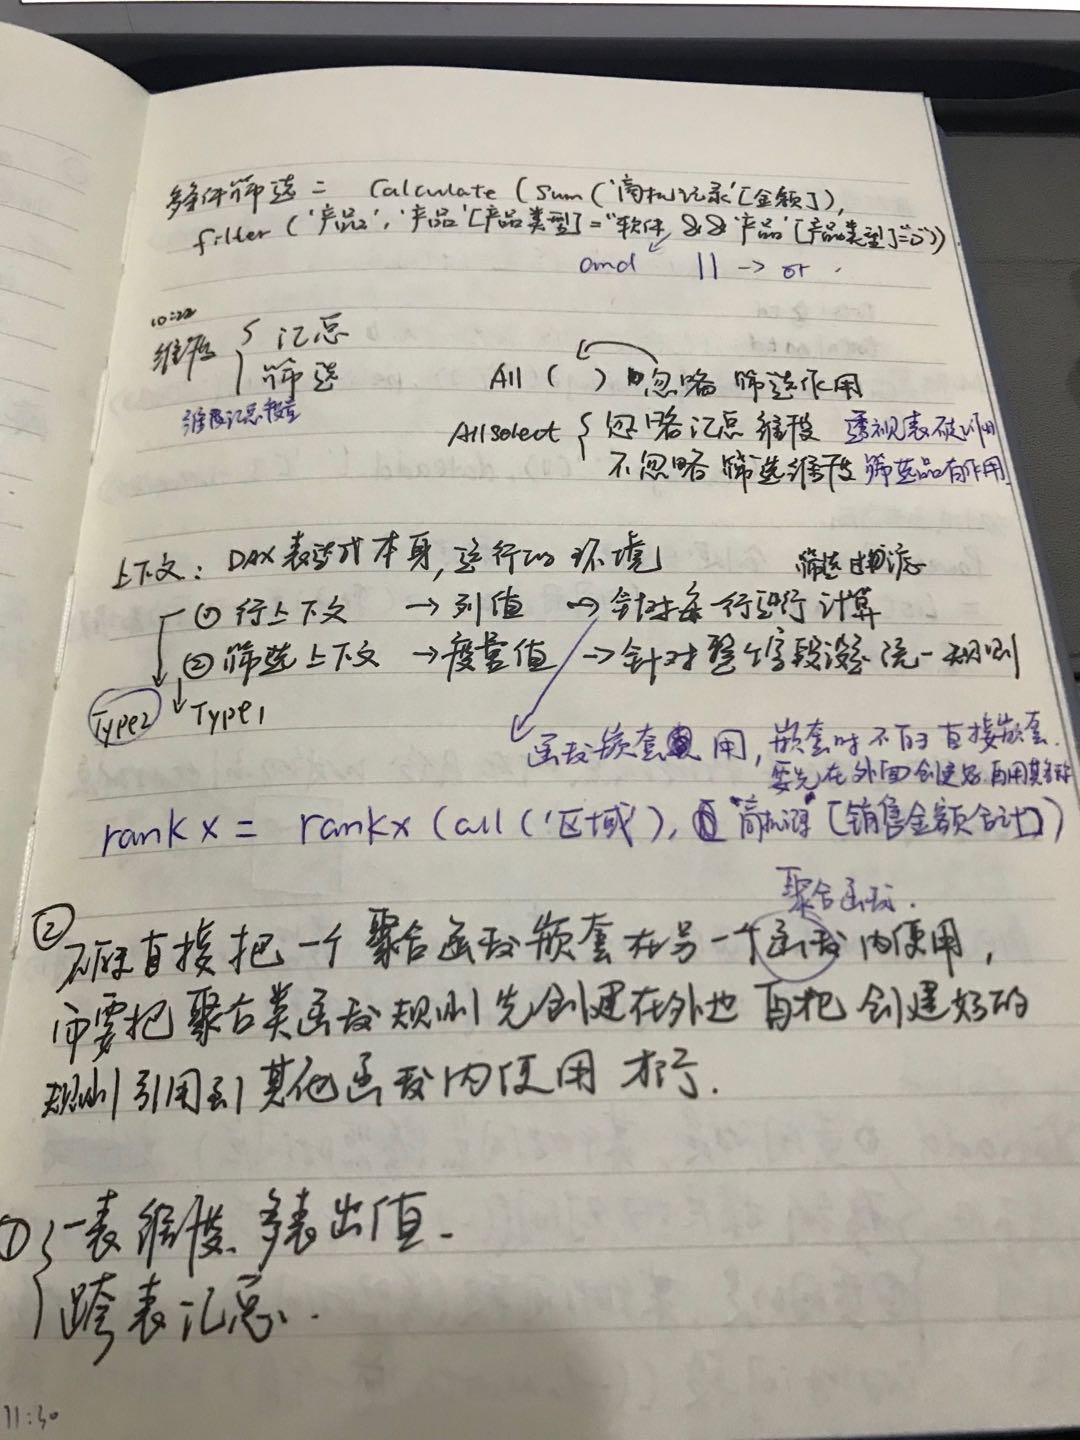 多条件筛选 = Calculate (Sum ('商机记录'[金额]),
filter ('产品', '产品'[产品类型]="软件 && '产品'[产品类型]="))
and || → or .
10:22
维度 { 汇总
筛选
All ( ) 忽略 筛选作用
Allselect { 忽略汇总维度 透视表
不忽略筛选维度 筛选器有作用
上下文: DAX表达式本身,运行的环境
筛选
① 行上下文 → 列值 → 针对每一行进行计算
② 筛选上下文 → 度量值 → 针对整个字段设 统一规则
Type2 Type1
函数嵌套 用, 嵌套时不可直接嵌套.
要先在外面创建好再用其名称
rankx = rankx (all ('区域'), "商机 [销售金额合计])
聚合函数.
② 不能直接把一个聚合函数嵌套在另一个函数内使用,
需要把聚合类函数规则先创建在外边 再把创建好的
规则引用到其他函数内使用才行.
① { 一表维度、多表出值.
跨表汇总.
11:30